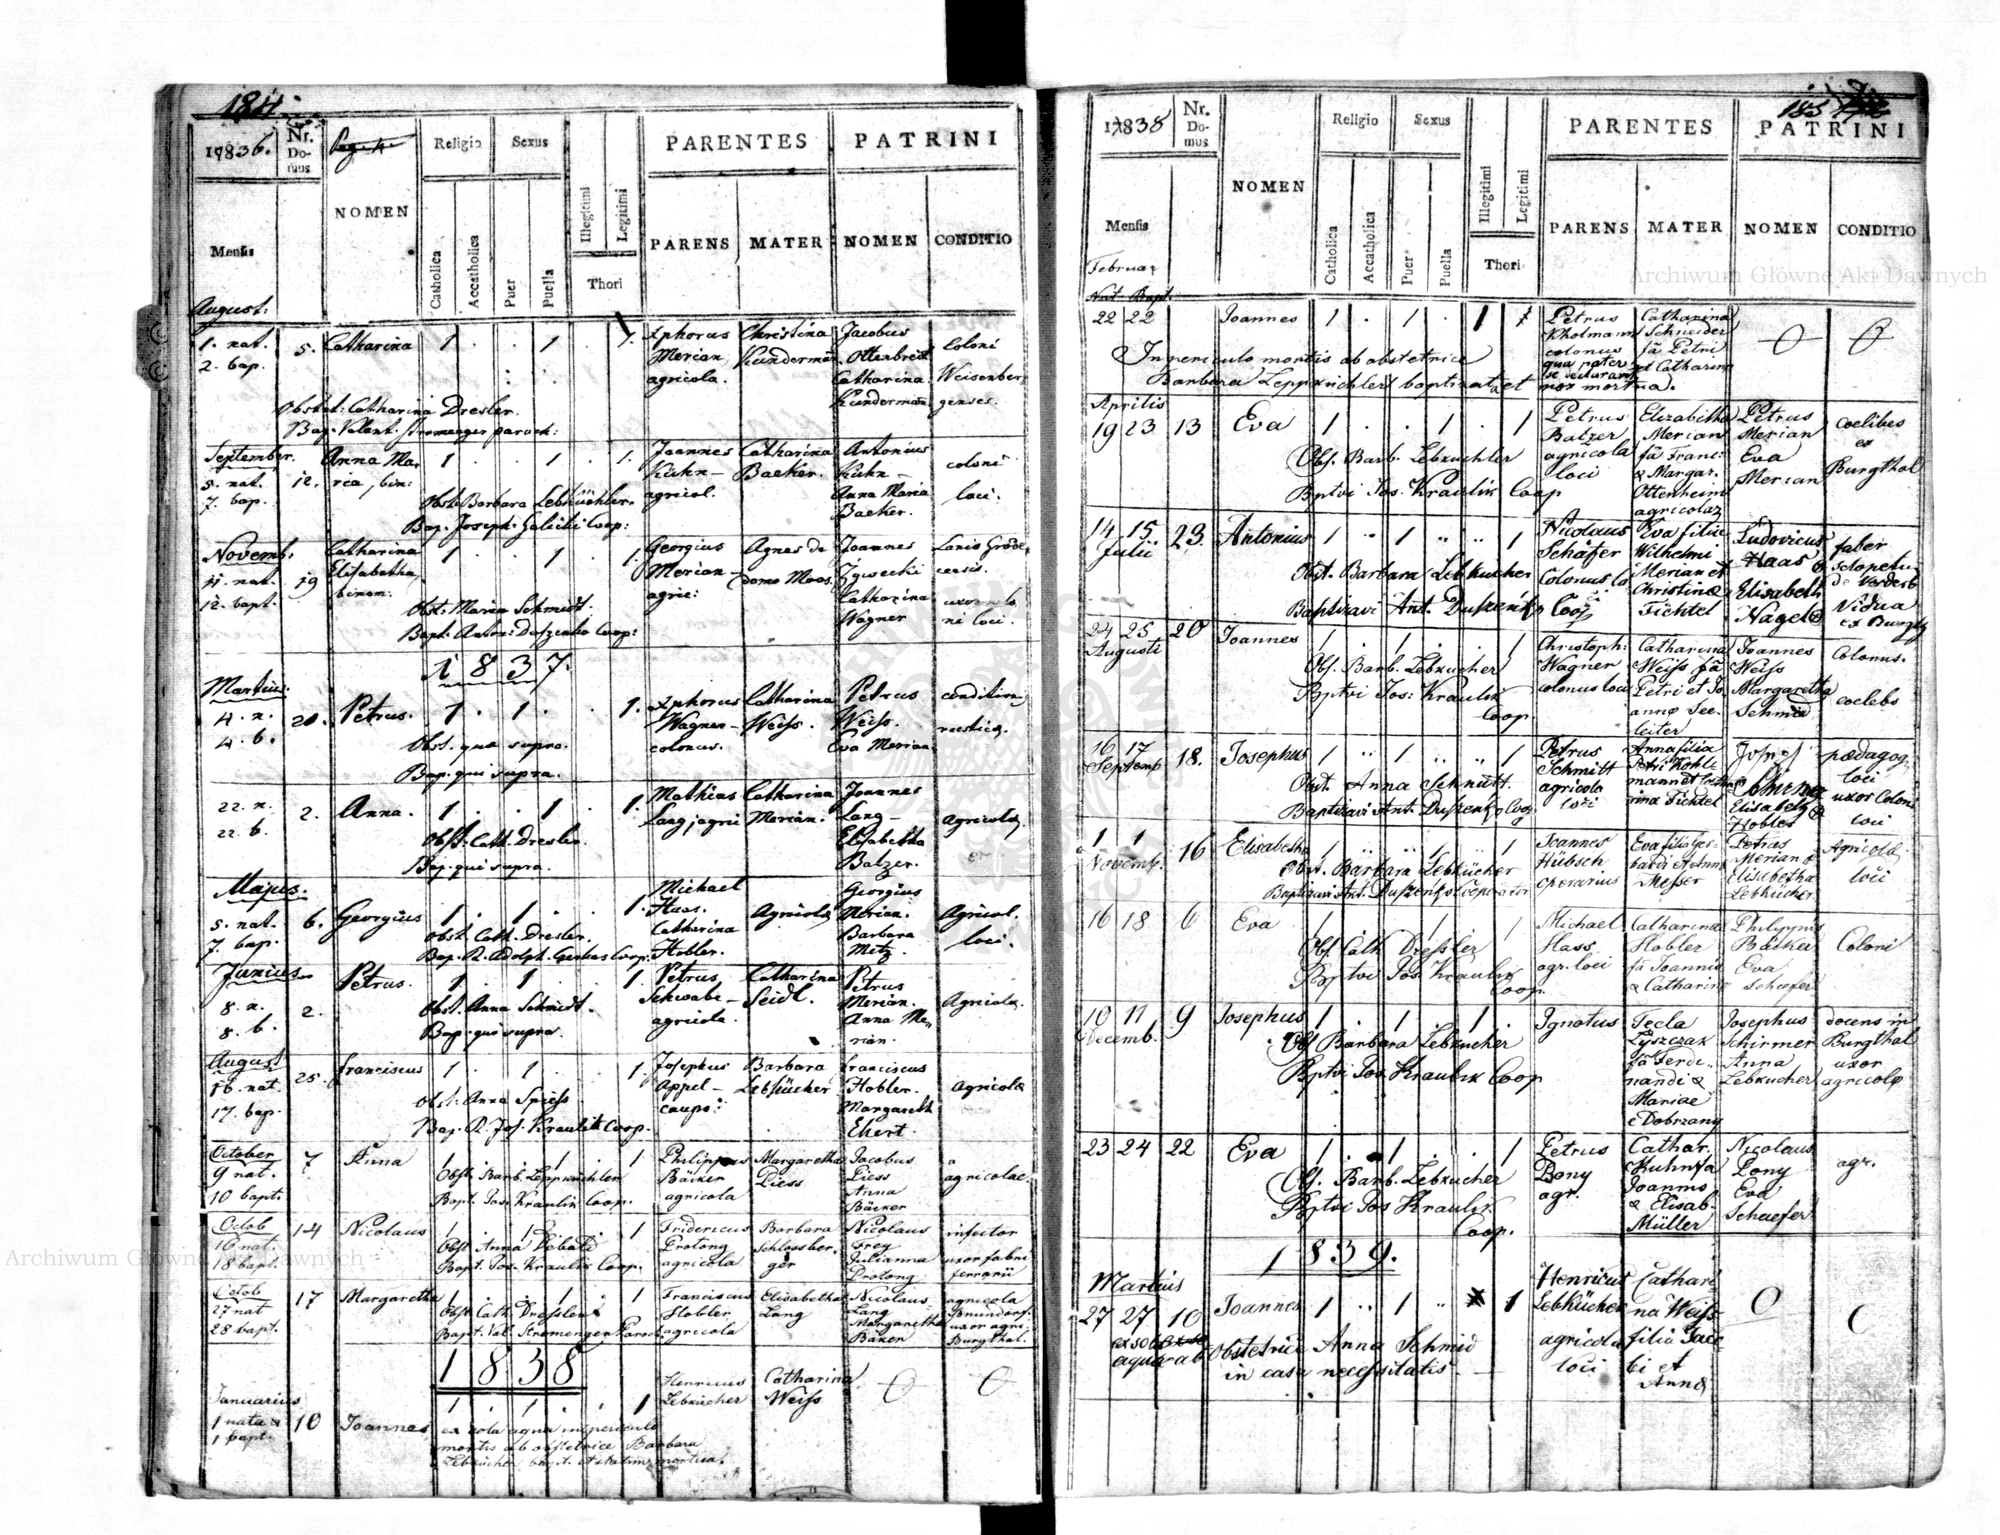 184.
17836.
Nr. Domus
Pag. 4.
NOMEN
Religio
Sexus
Catholica
Accatholica
Puer
Puella
Illegitimi
Legitimi
Thori
PARENTES
PATRINI
PARENS
MATER
NOMEN
CONDITIO
Mensis
August.
1. nat.
2. bap.
5. Catharina 1 . . 1 . 1.
Xphorus Merian agricola.
Christina Kunderman
Jacobus Ottenbreit
Catharina Kunderman.
Coloni Weisenbergenses.
Obstet: Catharina Dresler.
Bap. Valent. Stromenger paroch:
September.
5. nat.
7. bap.
12. Anna Maria, bin: 1 . . 1 . 1.
Joannes Kuhn - agricol.
Catharina Baeker.
Antonius Kuhn -
Anna Maria Baeker.
coloni loci.
Obst. Barbara Lebküchler.
Bap. Joseph. Galicki Coop:
Novemb.
11. nat.
12. bapt.
19 Catharina Elisabetha binom: 1 . . 1 . 1.
Georgius Merian - agric:
Agnes de domo Maas.
Joannes Zywecki
Catharina Wagner
uxor coloni loci.
Obst: Maria Schmidt.
Bapt. Anton: Duszenko Coop:
1837.
Martius.
4. n.
4. b.
20. Petrus. 1 . 1 . . 1.
Xphorus Wagner - colonus.
Catharina Weiss.
Petrus Weiss.
Eva Merian.
condition. rusticæ.
Obst. qua supra.
Bap. qui supra.
22. n.
22. b.
2. Anna. 1 . . 1 . 1.
Mathias Lang, agri
Catharina Merian.
Joannes Lang -
Elisabetha Balzer.
agricolæ.
Obst: Cath. Dresler.
Bap. qui supra.
Majus.
5. nat.
7. bap.
6. Georgius 1 . 1 . . 1.
Michael Haas.
Catharina Hobler.
Agricolæ
Georgius Merian.
Barbara Metz.
Agricol. loci.
Obst. Cath. Dresler.
Bap. R. Adolph. Coop.
Junius.
8. n.
8. b.
2. Petrus. 1 . 1 . . 1.
Petrus Schwabe - agricola.
Catharina Seidl.
Petrus Merian.
Anna Merian.
Agricolæ.
Obst. Anna Schmidt.
Bap. qui supra.
August
16. nat.
17. bap.
25. Franciscus 1 . 1 . . 1.
Josephus Appel - caupo:
Barbara Lebkücher
Franciscus Hobler.
Margareth Ehert.
agricolæ
Obst: Anna Spiess
Bap. R. Jos. Kraulik Coop.
October
9 nat.
10 bapt.
7 Anna 1 . . 1 . 1
Philippus Bäcker agricola
Margaretha Liess
Jacobus Liess
Anna Bäcker
agricolae.
Obst. Barb. Leppküchler
Bapt. Jos. Kraulik Coop.
Octob
16 nat
18 bapt.
14 Nicolaus 1 . 1 . . 1
Fridericus Protong agricola
Barbara Schlossberger
Nicolaus Frey
Julianna Protong
infector
uxor fabri ferrarii
Bapt. Jos. Kraulik Coop.
Octob
27 nat
28 bapt.
17 Margaretha 1 . . 1 . 1
Franciscus Hobler agricola
Elisabetha Lang
Nicolaus Lang
Margaretha Bäker
agricola
uxor agri. Burgthal.
Obst. Cath. Dressler
Bapt. Val. Stromenger Paroch
1838
Januarius
1 nata &
1 bapt.
10 Joannes 1 . 1 . . 1
Henricus Lebkücher
Catharina Weiss
O O
ex sola aqua in periculo
mortis ab obstetrice Barbara
Lebkücher bapt. et statim mortua.
185
17838
Nr. Domus
NOMEN
Religio
Sexus
Catholica
Accatholica
Puer
Puella
Illegitimi
Legitimi
Thori
PARENTES
PATRINI
PARENS
MATER
NOMEN
CONDITIO
Mensis
Februar
Nat. Bapt.
22 22 Joannes 1 . 1 . 1
Petrus Kholmann colonus qua pater se declarant
Catharina Schneider fa Petri et Catharin
O O
In periculo mortis ab obstetrice
Barbara Leppküchler baptizata et mox mortua.
Aprilis
19 23 13 Eva 1 . . 1 . 1
Petrus Balzer agricola loci
Elizabetha Merian fa Franc: & Margar. Ottenheim agricolar
Petrus Merian
Eva Merian
coelibes ex Burgthal
Obs. Barb. Lebkuchler
Bptvi Jos. Kraulik Coop
14 15 Julii
23. Antonius 1 " 1 " " 1
Nicolaus Schäfer Colonus
Eva filia Wilhelmi Merian et Christinæ Fichtel
Ludovicus Haas &
Elisabeth Nagel
faber
Vidua ex Burgth
Obst. Barbara Lebkücher
Baptizavi Ant. Duszenko Coop
24 25 Augusti
20 Joannes 1 . 1 . . 1
Christoph: Wagner colonus loci
Catharina Weiss fa Petri et Joannæ Seeleiter
Joannes Weiss
Margaretha Schmid
Colonus.
coelebs
Obs. Barb. Lebkucher
Bptvi Jos: Kraulik Coop
16 17 Septemb
18. Josephus 1 " 1 " " 1
Petrus Schmitt agricola loci
Anna filia Petri Kohlmann et Catharina Fichtel
Josef Schirmer
Elisabeth Hobler
pædagog. loci
uxor Coloni loci
Obst. Anna Schmitt.
Baptizavi Ant. Duszenko Coop.
1 1 Novemb.
16 Elisabetha 1 " " 1 " 1
Joannes Hübsch operarius
Eva filia Gerhardi et Annæ Messer
Petrus Merian &
Elisabetha Lebkücher
Agricolæ loci
Obst. Barbara Lebkücher
Baptizavi Ant. Duszenko Cooperator
16 18 6 Eva 1 . . 1 . 1
Michael Hass agr. loci
Catharina Hobler fa Joannis & Catharinæ
Philippus Bäcker
Eva Schæfer
Coloni
Obs. Cath Dressler
Bptvi Jos. Kraulik Coop.
10 11 Decemb.
9 Josephus 1 . 1 . 1 .
Ignatus
Tecla Lyszczak fa Ferdinandi & Mariae e Dobrzany
Josephus Schirmer
Anna Lebkucher
docens in Burgthal
uxor agricolæ
Obs Barbara Lebkucher
Bptvi Jos. Kraulik Coop
23 24 22 Eva 1 . 1 . . 1
Petrus Lony agr.
Cathar. Kuhn fa Joannis & Elisab. Müller
Nicolaus Lony
Eva Schaefer
agr.
Obs. Barb. Lebkucher
Bptvi Jos Kraulik Coop.
1839.
Martius
27 27 10 Joannes 1 " 1 " 1
Henricus Lebkücher agricola loci
Catharina Weiss filia Jacobi et Annæ
O O
ex sola
aqua ab obstetrice Anna Schmid
in casu necessitatis. —
Archiwum Główne Akt Dawnych
Archiwum Główne Akt Dawnych